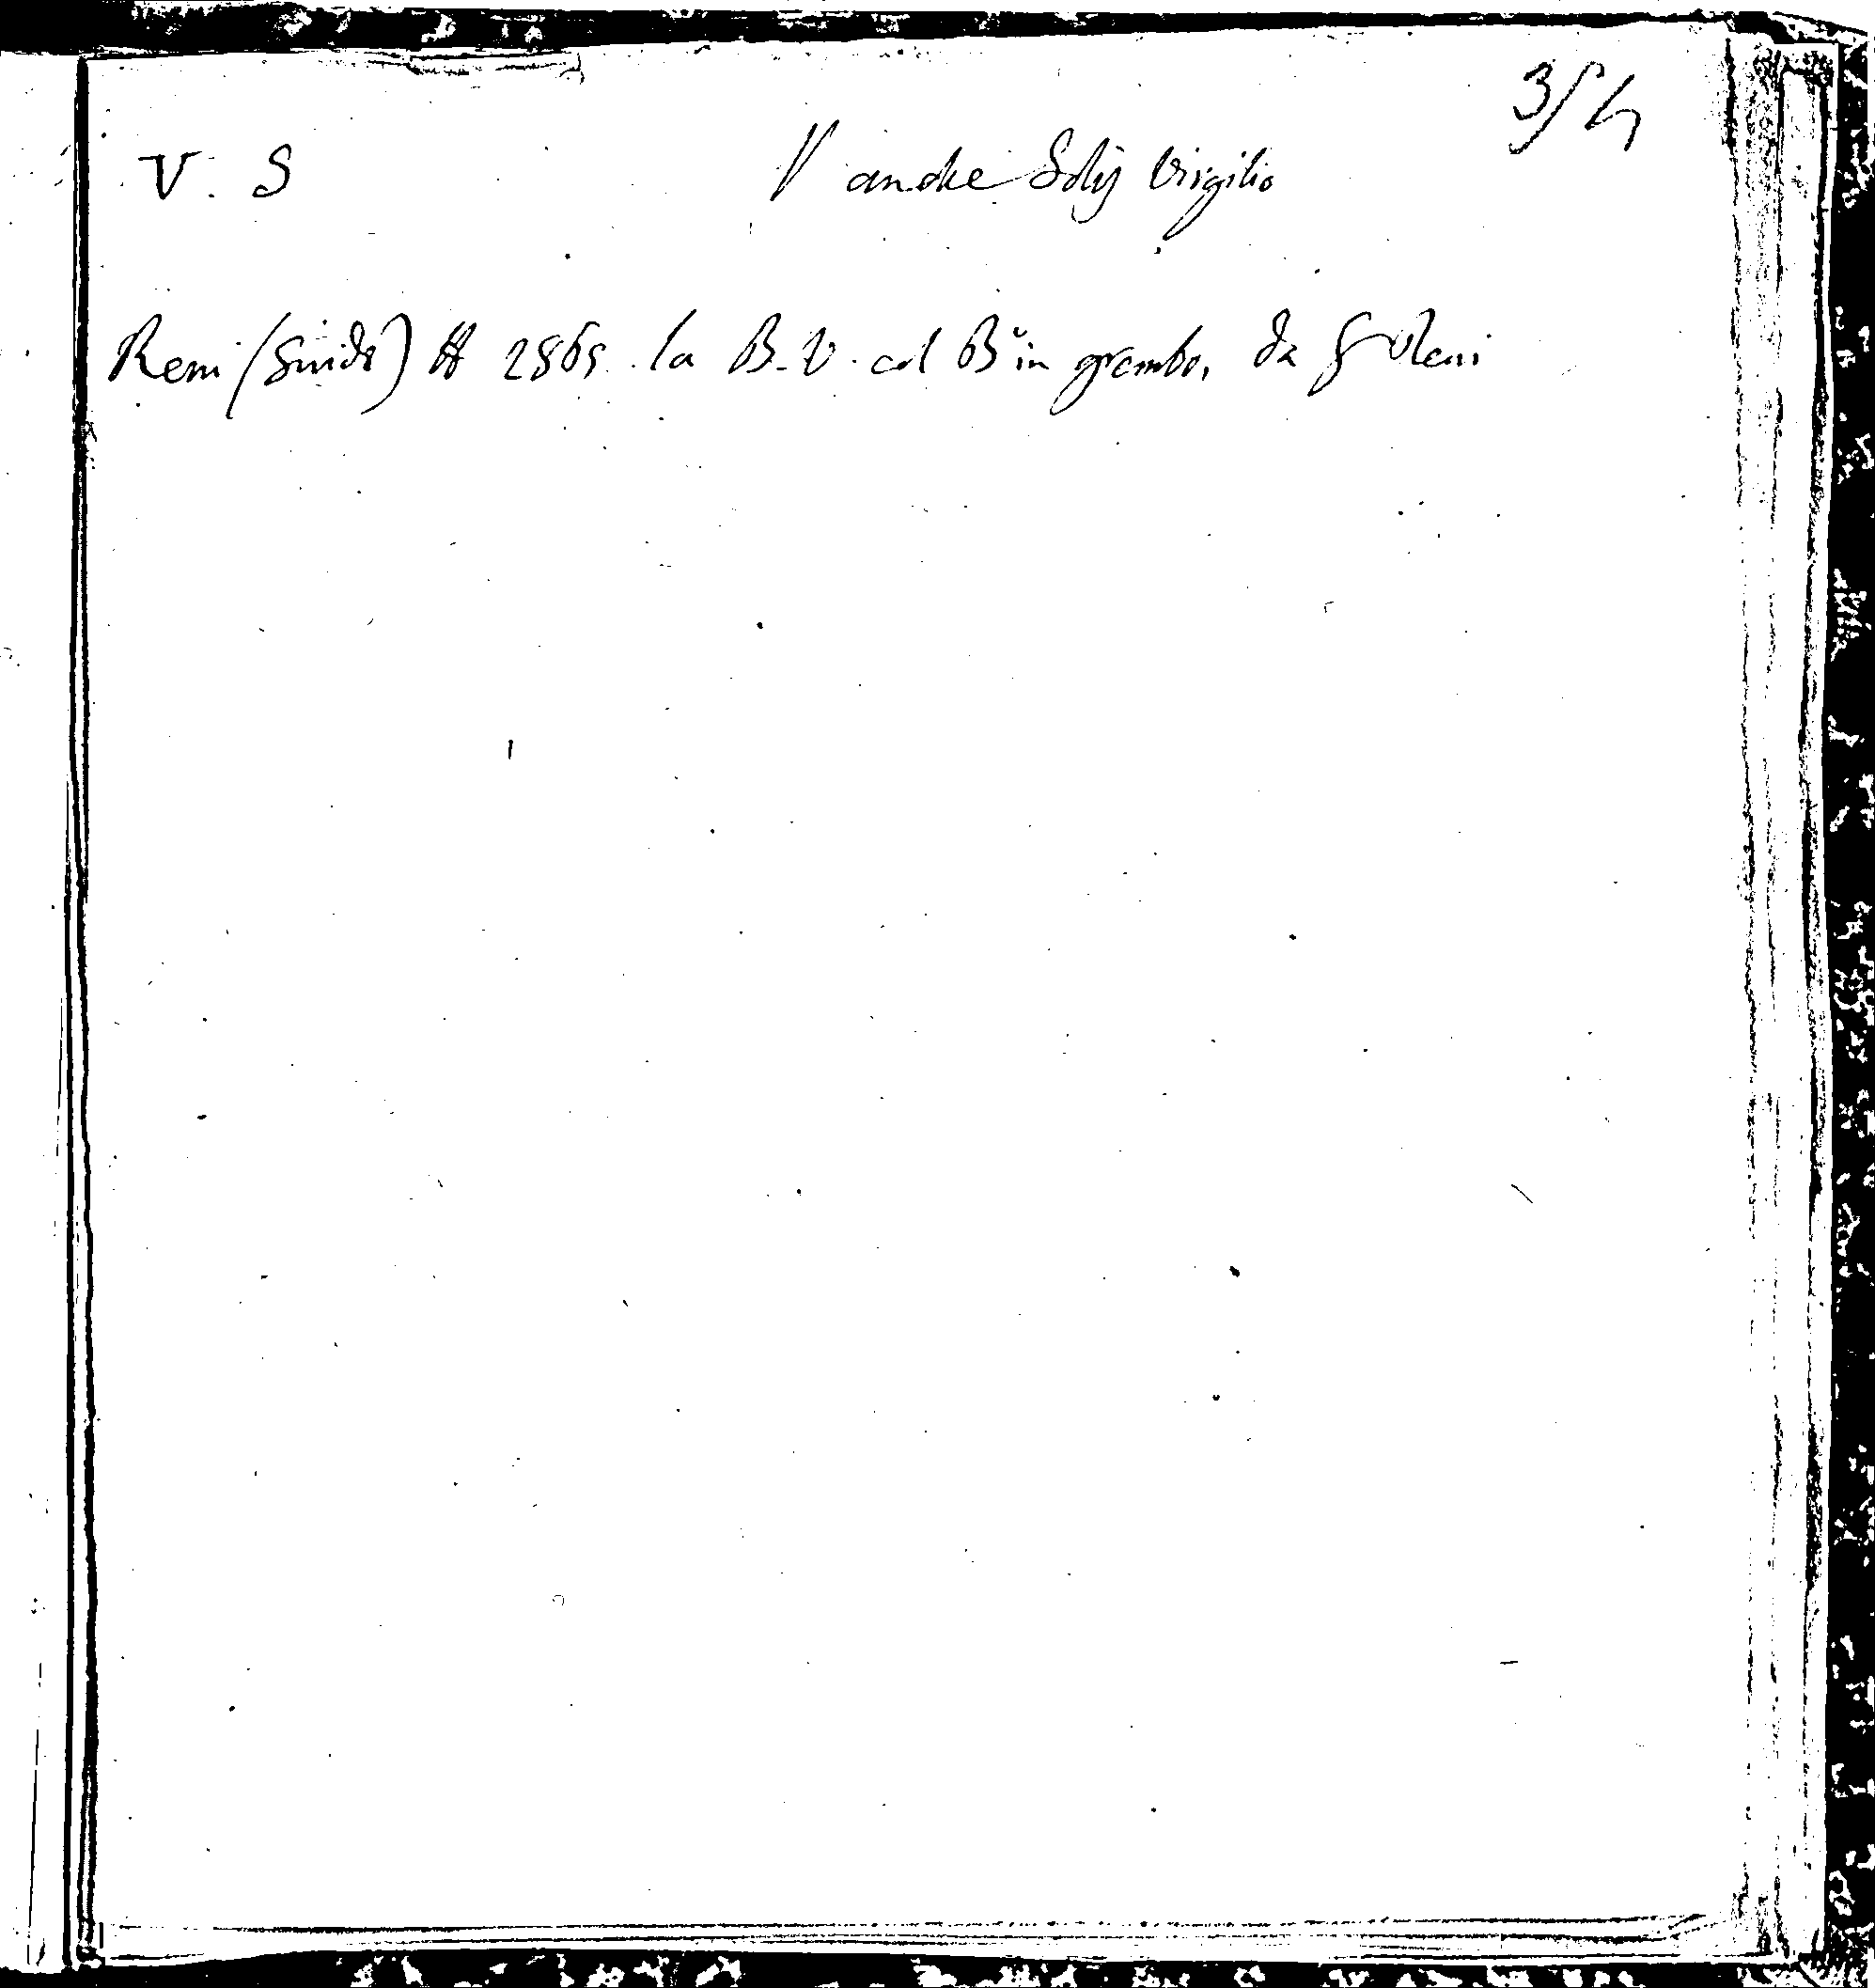 354
V. S V anche Solis Virgilio
Reni (Guido) A 2865. la B. V. col Bº in grembo, da G Reni